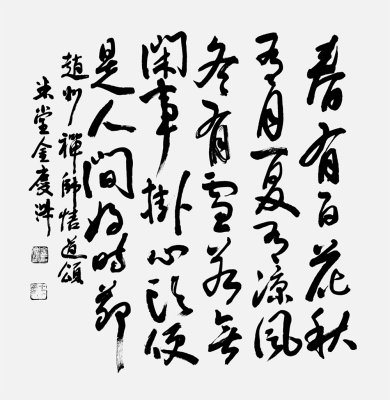 春有百花秋
有月夏有涼風
冬有雪若無
閑事掛心頭便
是人間好時節
趙州禪師悟道頌
堂金慶